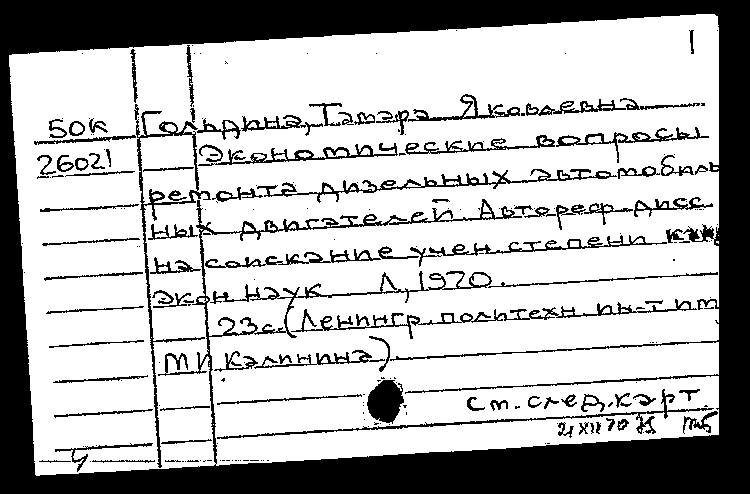 1
50к Гольдина, Тамара Яковлевна
26021 Экономические вопросы
ремонта дизельных автомобиль
ных двигателей. Автореф. дисс.
на соискание учен. степени
экон. наук. Л, 1970.
23с. (Ленингр. политехн. ин-т им
М И Калинина).
См. след. карт
21 XII 70
ч